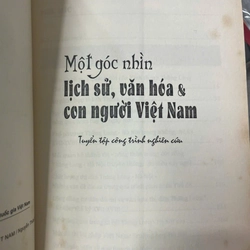 Một góc nhìn
lịch sử, văn hóa &
con người Việt Nam
Tuyển tập công trình nghiên cứu
quốc gia Việt Nam